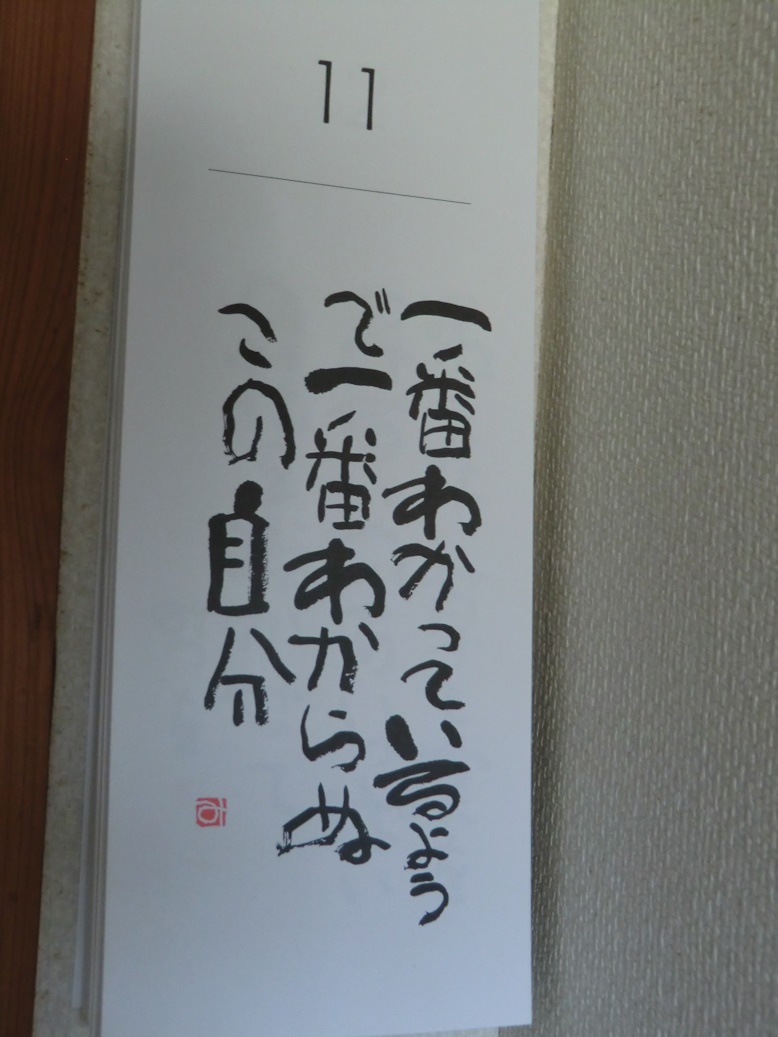 11
一番わかっているよう
で一番わからぬ
この自分